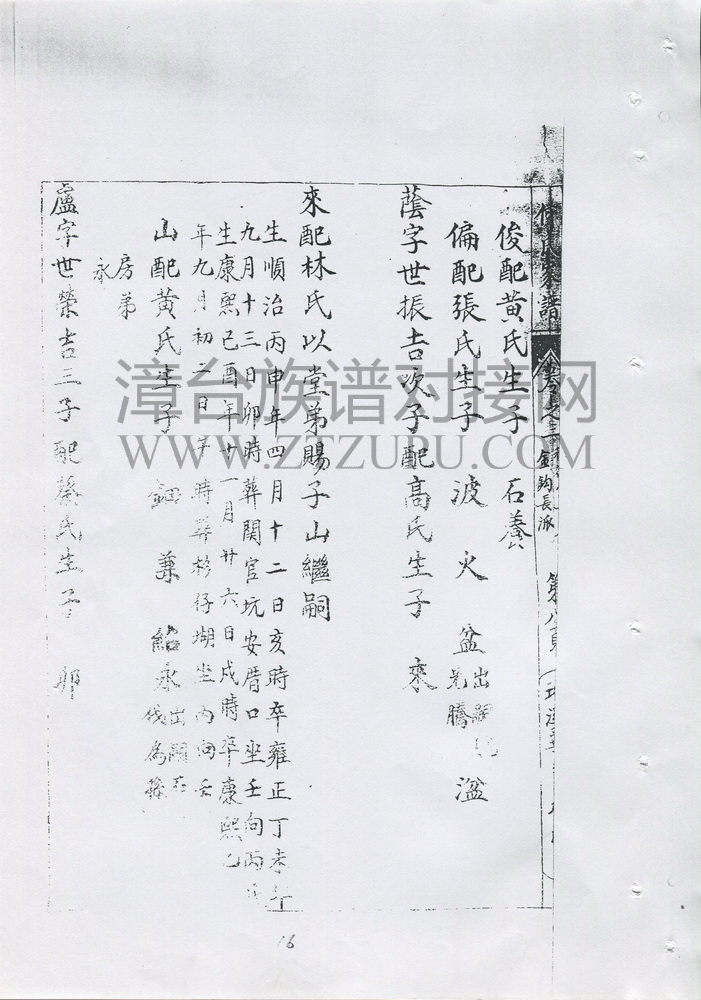 氏家譜 卷之三 金鈎長派 第八頁
俊配黄氏生子 石養
偏配張氏生子 波 火 盆 出嗣 兄騰 溋
蔭字世振吉次子配高氏生子 來
來配林氏以堂弟賜子山繼嗣
生順治丙申年四月十二日亥時卒雍正丁未年
九月十三日卯時葬関官坑安厝口坐壬向丙
生康熙己酉年十一月廿六日戍時卒康熙
年九月初二日 時葬杉仔堋坐丙向壬
山配黄氏生子 鈿 兼 永出嗣
房弟
永
盧字世榮吉三子配蔡氏生子
漳台族谱对接网
WWW.ZTZUPU.COM
16